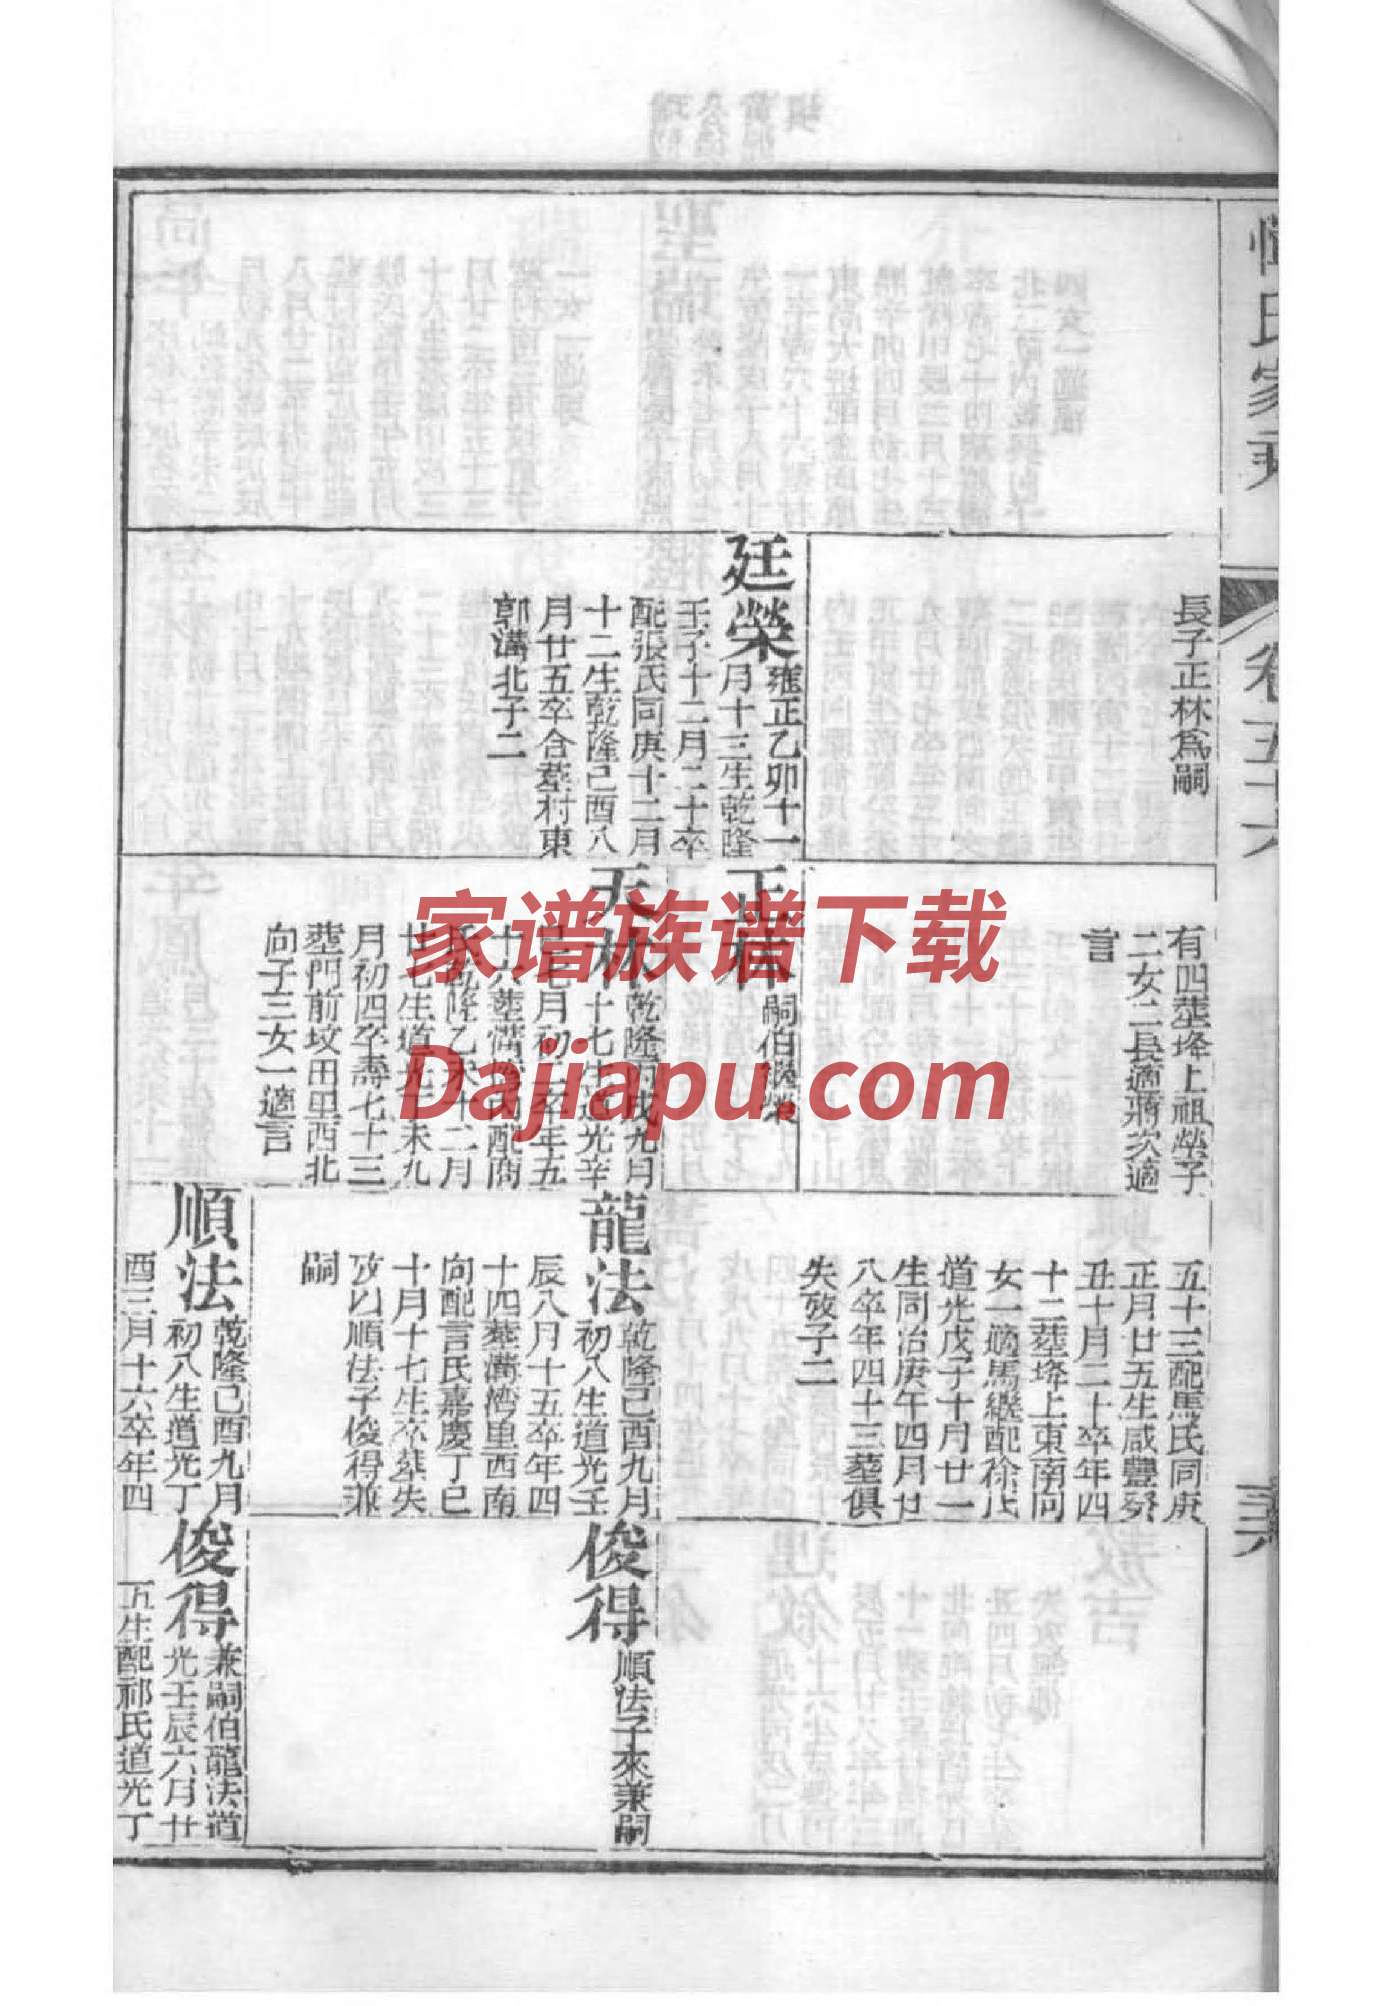 惲氏家乘
卷五十六
三六
長子正林爲嗣
廷榮
雍正乙卯十一
月十三生乾隆
壬子十二月二十卒
配張氏同庚十二月
十二生乾隆己酉八
月廿五卒合塟村東
郭溝北子二
有四塟垰上祖塋子
二女二長適蔣次適
言
正林
嗣伯
天林
乾隆丙戌九月
十七生道光辛
七月初二卒年五
十六塟溝 配商
氏乾隆乙未十二月
廿七生道光 未九
月初四卒壽七十三
塟門前坟田里西北
向子三女一適言
五十三配馬氏同庚
正月廿五生咸豐癸
丑十月二十卒年四
十二塟垰上東南向
女一適馬繼配徐氏
道光戊子十月廿一
生同治庚午四月廿
八卒年四十三塟俱
失攷子二
龍法
乾隆己酉九月
初八生道光壬
辰八月十五卒年四
十四塟溝灣里西南
向配言氏嘉慶丁巳
十月十七生卒塟失
攷以順法子俊得兼
嗣
順法
乾隆己酉九月
初八生道光丁
酉三月十六卒年四
俊得
順法子來兼嗣
俊得
兼嗣伯龍法道
光壬辰六月廿
五生配祁氏道光丁
家谱族谱下载
Dajiapu.com